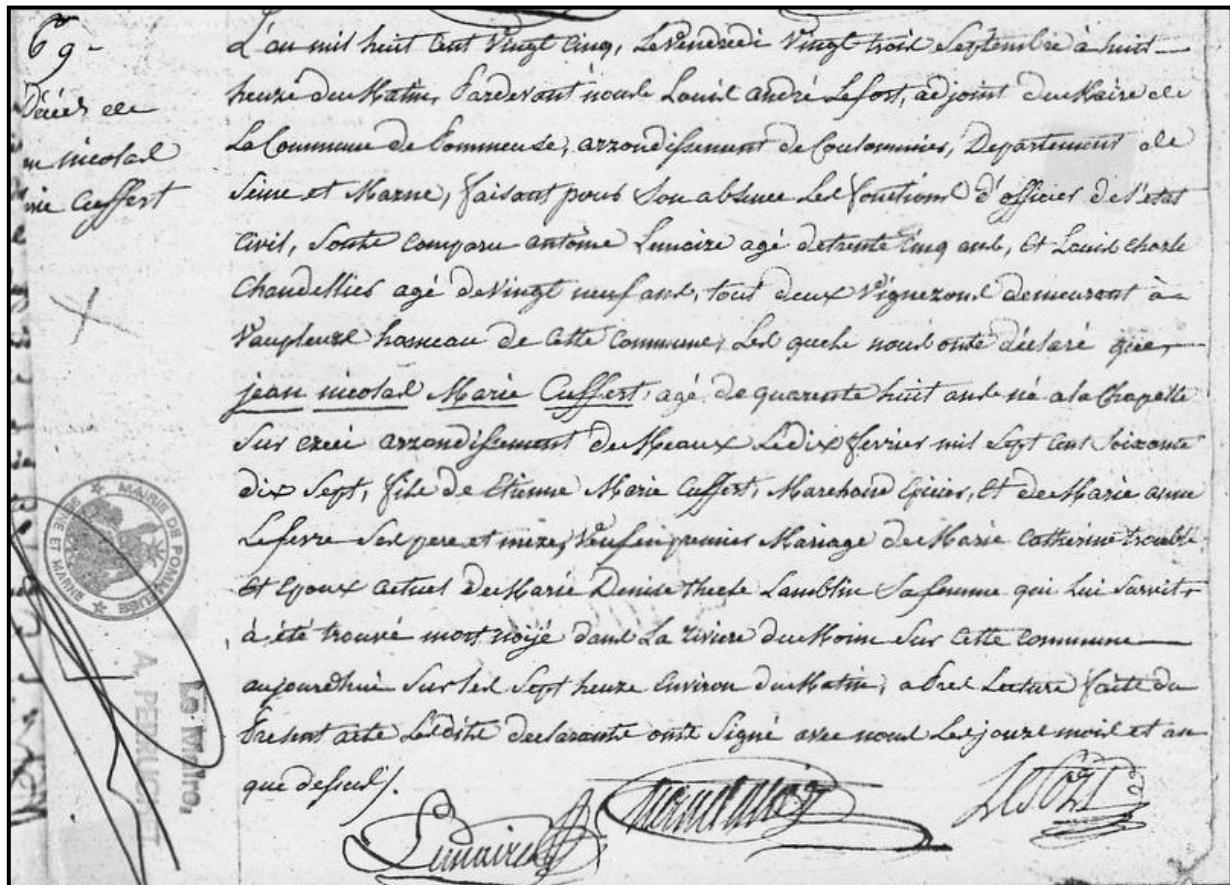 69-
Décès de
nicolas
Cuffert
L'an mil huit cent vingt cinq, le vendredi vingt trois Septembre à huit
heure du Matin, Pardevant nous Louis andré Lefort, adjoint du Maire de
La Commune de Pommeuse, arrondissement de Coulommiers, Departement de
Seine et Marne, faisant pour Son absence Les fonctions d'officier de l'etat
Civil, Sonte Comparu antoine Lemaire agé de trente Cinq ans, et Louis Charle
Chandellier agé de Vingt neuf ans, tous deux Vignerons demeurant à
Vaupleure hameau de Cette Commune, Les quels nous onte déclaré que,
jean nicolas Marie Cuffert, agé de quarente huit ans né a la Chapelle
Sur creci arrondissement de Meaux Le dix fevrier mil Sept Cent Soizante
dix Sept, fils de Etienne Marie Cuffert, Marchand Epicier, et de Marie anne
Lefevre Ses pere et mere, Veuf en premier Mariage de Marie Catherine trouble
et Epoux actuel de Marie Denise thecle Lamblin Sa femme qui Lui Survit,
à été trouvé mort noijé dans La riviere du Morin Sur Cette Commune
aujourdhui Sur les Sept heure Environ du Matin, apres Lecture faite du
Present acte Lesdits declarants onte Signé avec nous Les jours mois et an
que dessus /.
Lemaire
Lefort
MAIRIE DE POMMEUSE
SEINE ET MARNE
Le Maire,
A. PERRUCHOT